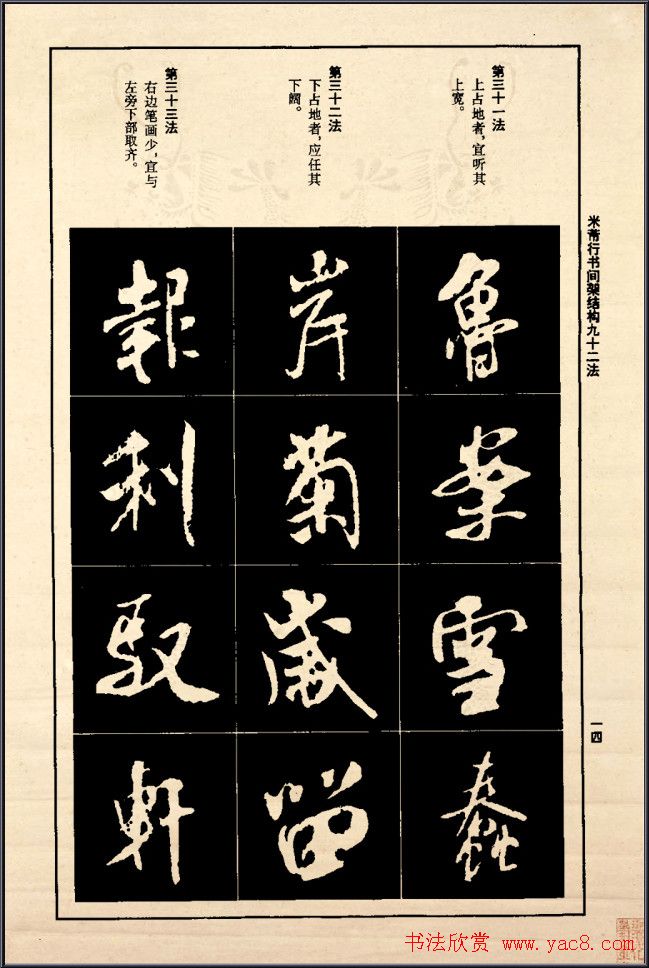 米芾行书间架结构九十二法
一四
第三十一法
上占地者，宜听其
上宽。
魯
雪
蠢
第三十二法
下占地者，应任其
下阔。
岸
菊
歲
留
第三十三法
右边笔画少，宜与
左旁下部取齐。
報
利
馭
軒
书法欣赏 www.yac8.com